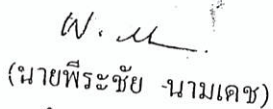 (นายพีระชัย -นามเดช)